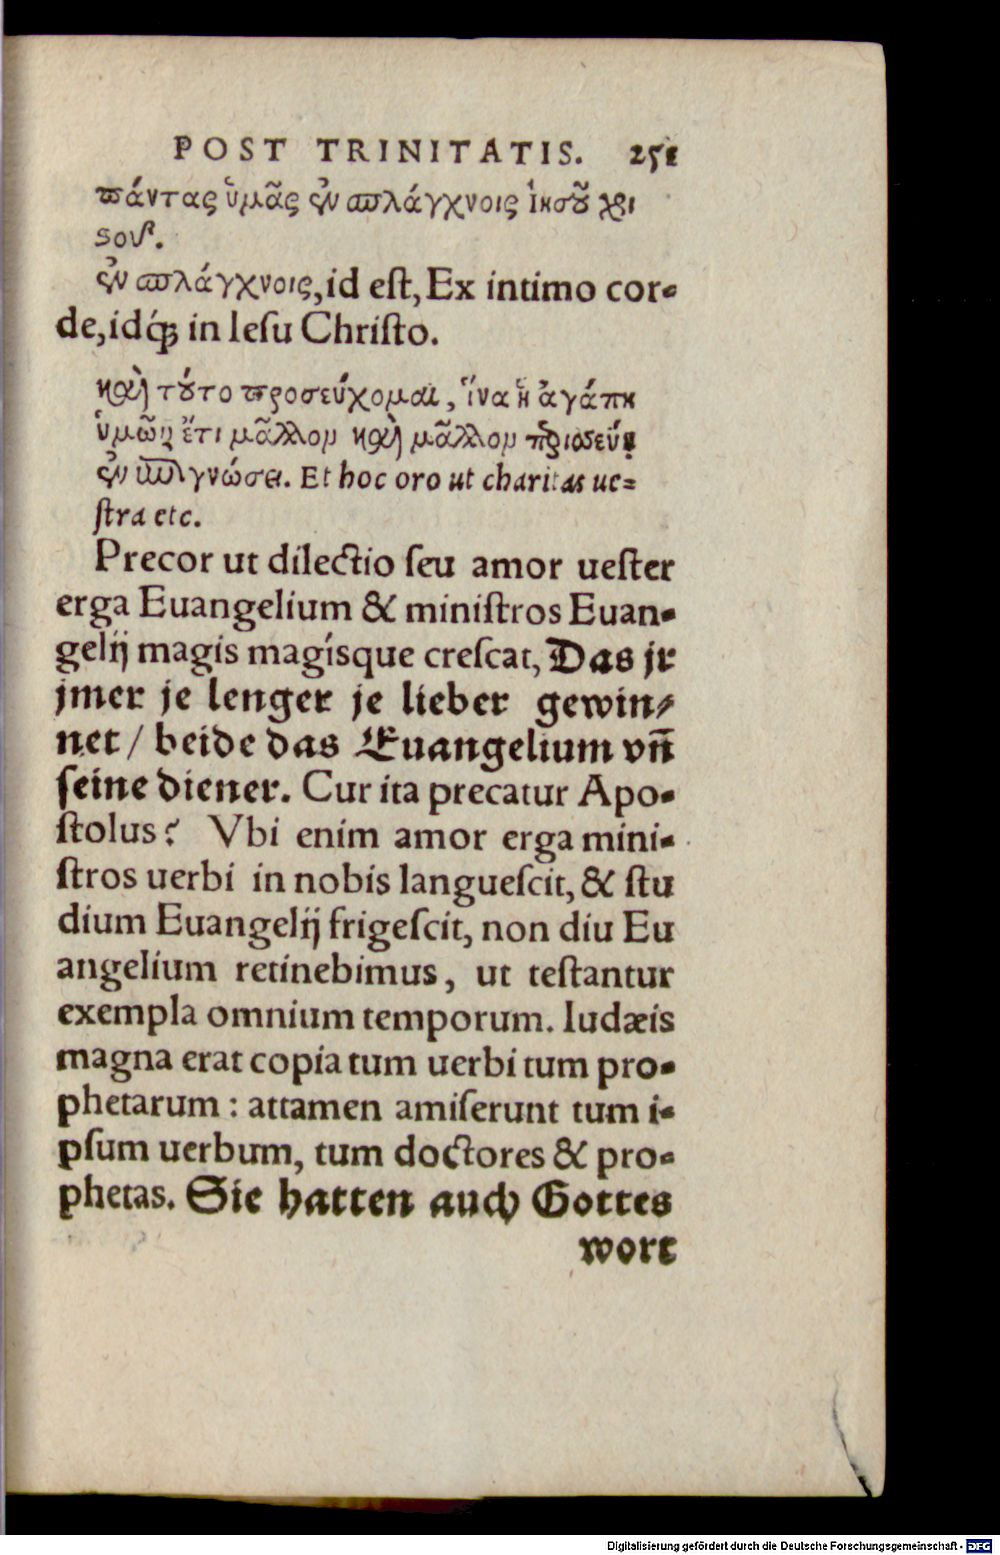 POST TRINITATIS. 251
πάντας ὑμᾶς ἐν σπλάγχνοις Ἰησοῦ χρι
ςοῦ.
ἐν σπλάγχνοις, id eſt, Ex intimo cor-
de, idq́ꝫ in Ieſu Chriſto.
καὶ τοῦτο προσεύχομαι, ἵνα ἡ ἀγάπη
ὑμῶν ἔτι μᾶλλον καὶ μᾶλλον περισσεύῃ
ἐν ἐπιγνώσει. Et hoc oro ut charitas ue=
ſtra etc.
Precor ut dilectio ſeu amor ueſter
erga Euangelium & miniſtros Euan-
gelij magis magisque creſcat, Das jr
jmer je lenger je lieber gewin-
net / beide das Euangelium vn̄
ſeine diener. Cur ita precatur Apo-
ſtolus? Vbi enim amor erga mini-
ſtros uerbi in nobis langueſcit, & ſtu
dium Euangelij frigeſcit, non diu Eu
angelium retinebimus, ut teſtantur
exempla omnium temporum. Iudæis
magna erat copia tum uerbi tum pro-
phetarum: attamen amiſerunt tum i-
pſum uerbum, tum doctores & pro-
phetas. Sie hatten auch Gottes
wort
Digitalisierung gefördert durch die Deutsche Forschungsgemeinschaft - DFG